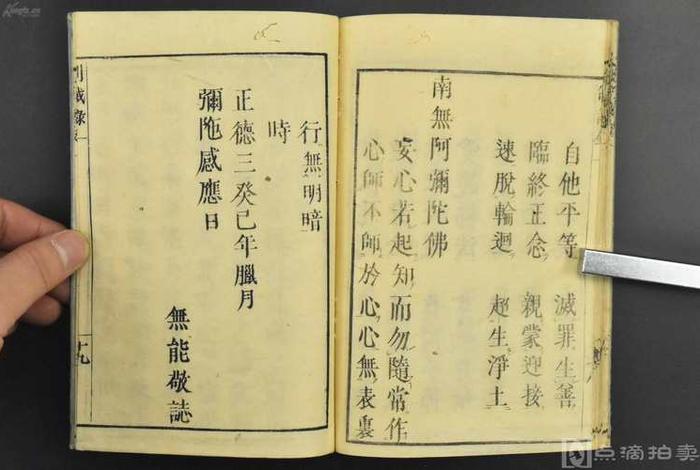 自他平等 滅罪生善
臨終正念 親蒙迎接
速脫輪迴 超生淨土
南無阿彌陀佛
妄心若起知而勿隨常作
心師不師於心心無表裏
行無明暗
時
正德三癸巳年臘月
彌陁感應日
無能敬誌
十九
点滴拍卖